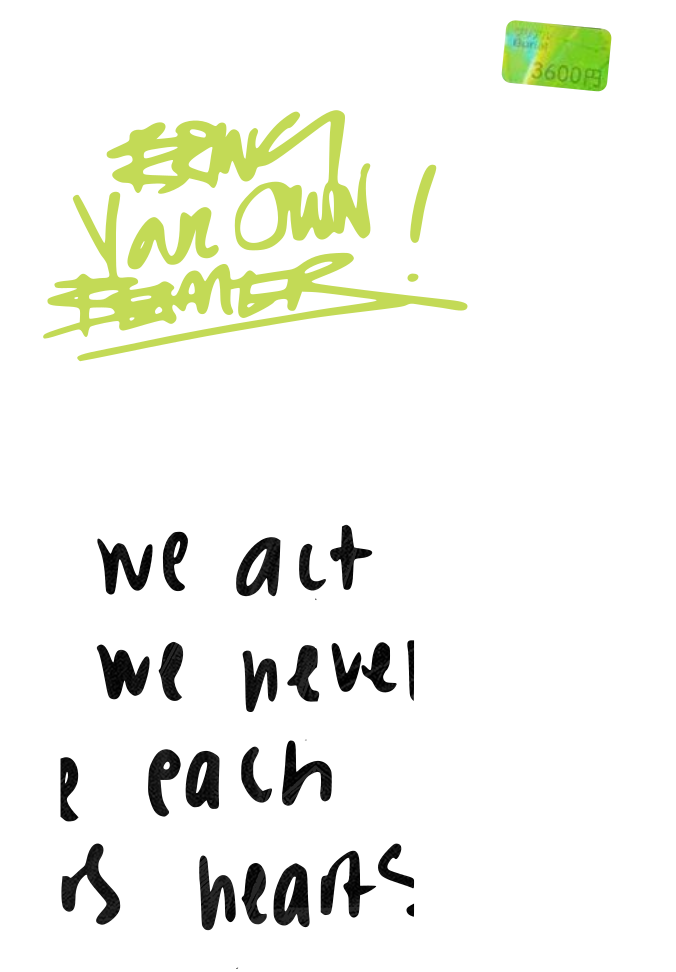 3600円
BRING
Your OWN !
BEAMER
we act
we neve
e each
rs hearts